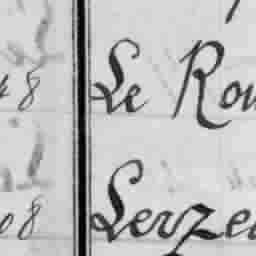 8 Le Rou
08 Lerzeı